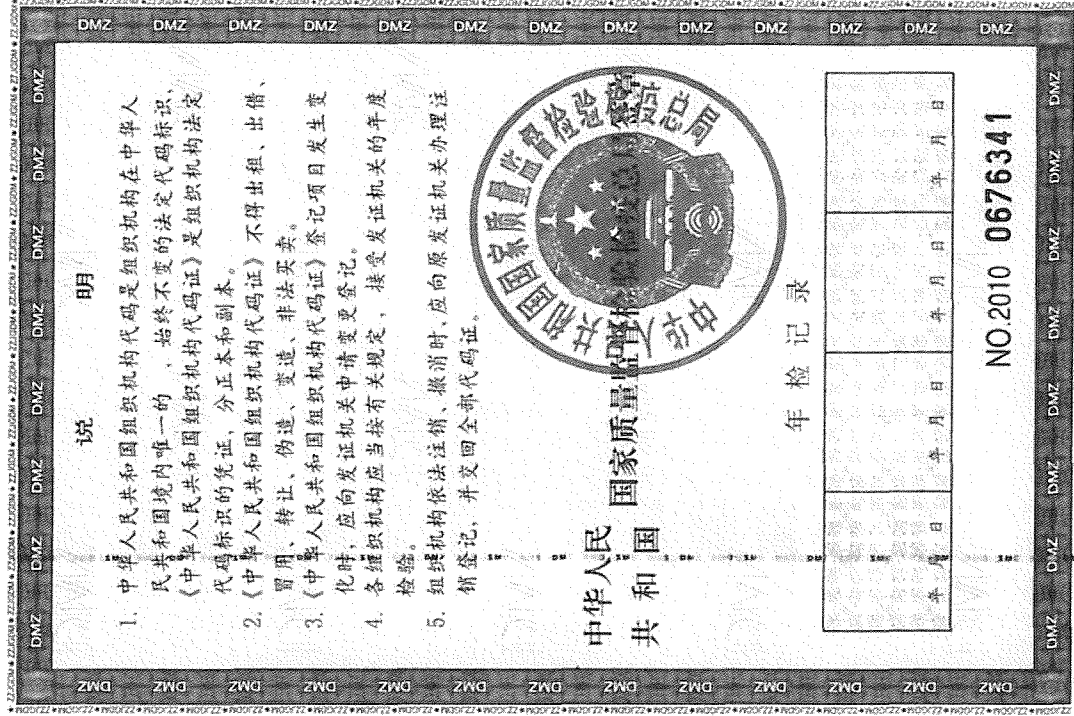 说 明
1. 中华人民共和国组织机构代码是组织机构在中华人
民共和国境内唯一的、始终不变的法定代码标识,
《中华人民共和国组织机构代码证》是组织机构法定
代码标识的凭证,分正本和副本。
2.《中华人民共和国组织机构代码证》不得出租、出借、
冒用、转让、伪造、变造、非法买卖。
3.《中华人民共和国组织机构代码证》登记项目发生变
化时,应向发证机关申请变更登记。
4. 各组织机构应当按有关规定,接受发证机关的年度
检验。
5. 组织机构依法注销、撤消时,应向原发证机关办理注
销登记,并交回全部代码证。
中华人民
共和国
国家质量监督检验检疫总局
中华人民共和国国家质量监督检验检疫总局
年检记录
年 月 日
年 月 日
年 月 日
年 月 日
NO.2010 0676341
DMZ